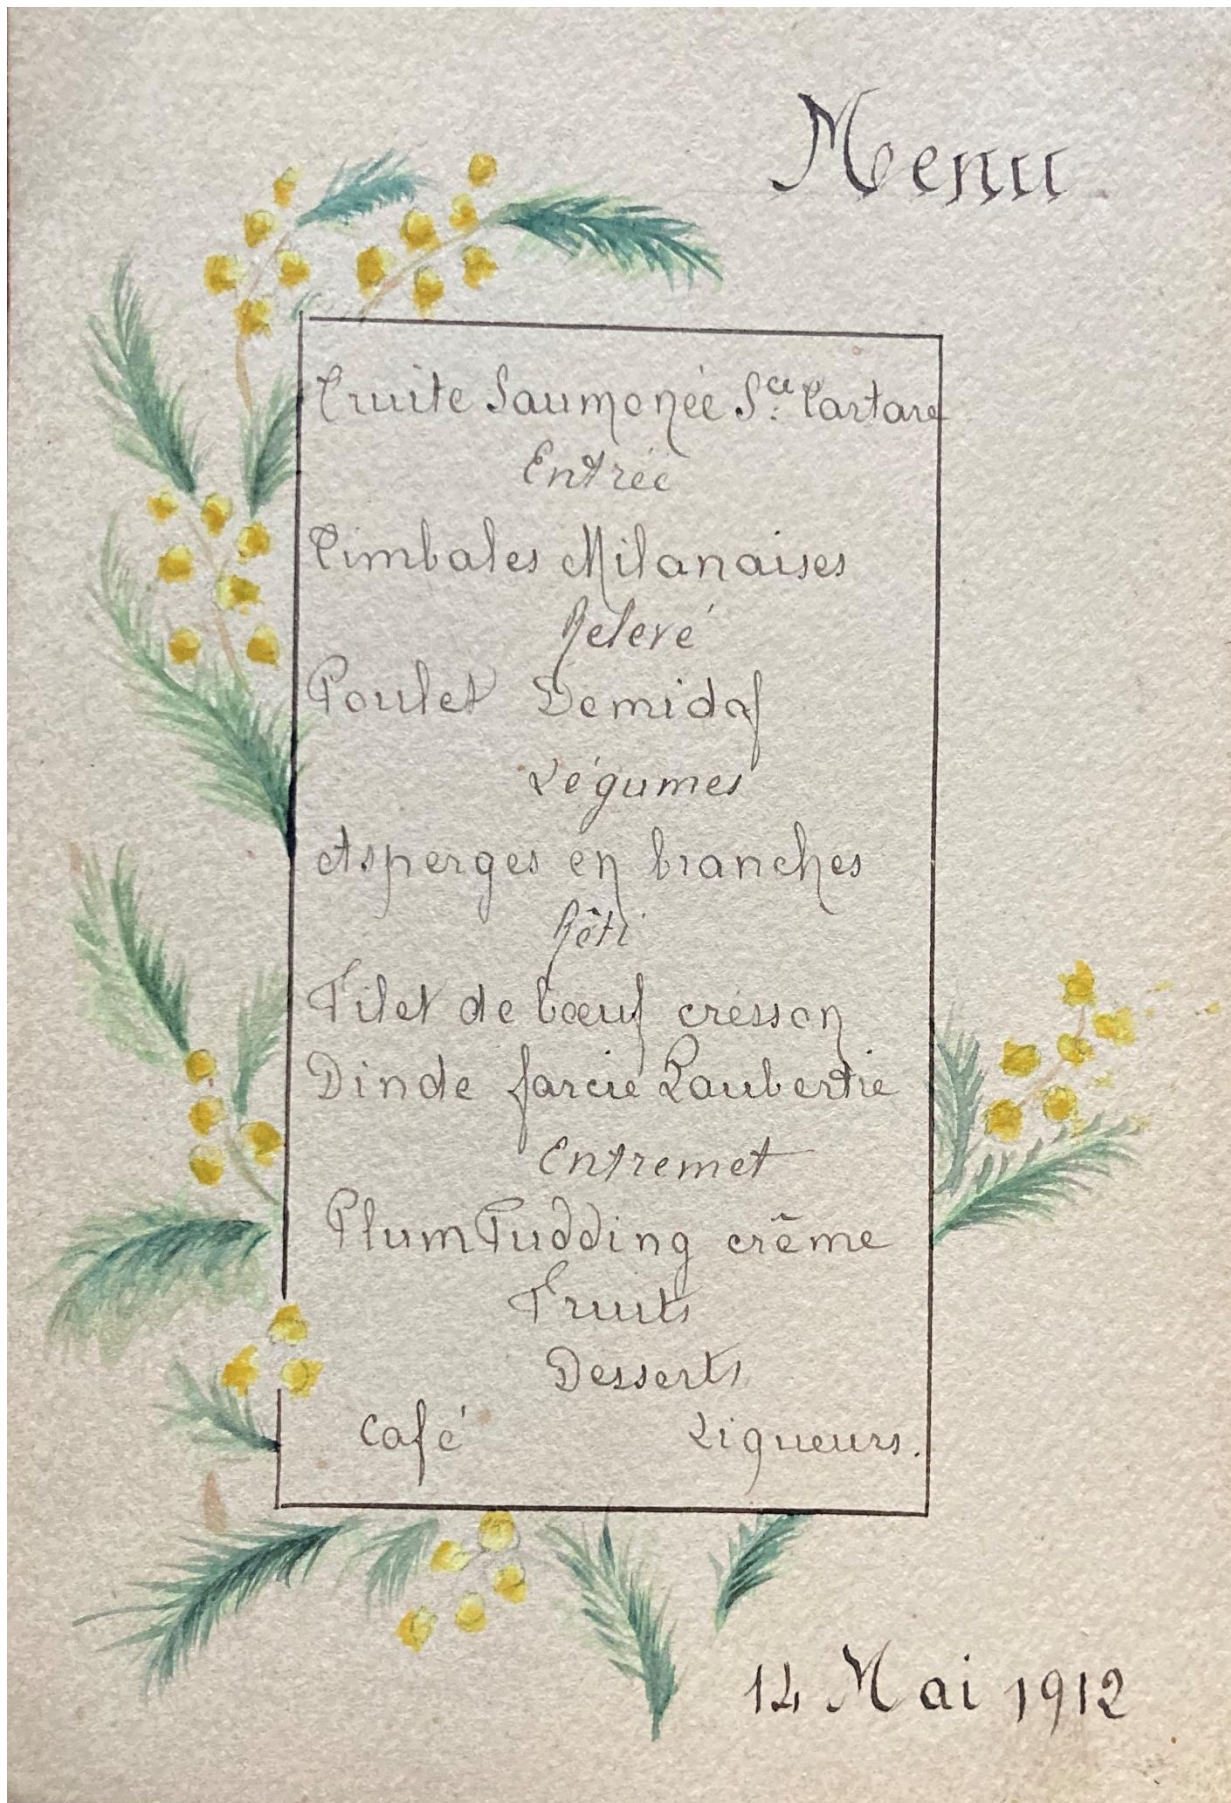 Menu
Truite Saumonée Sce. Tartare
Entrée
Timbales Milanaises
Relevé
Poulet Demidof
Légumes
Asperges en branches
Rôti
Filet de bœuf cresson
Dinde farcie Laubertie
Entremet
Plum Pudding crême
Fruits
Desserts
Café Liqueurs.
14 Mai 1912